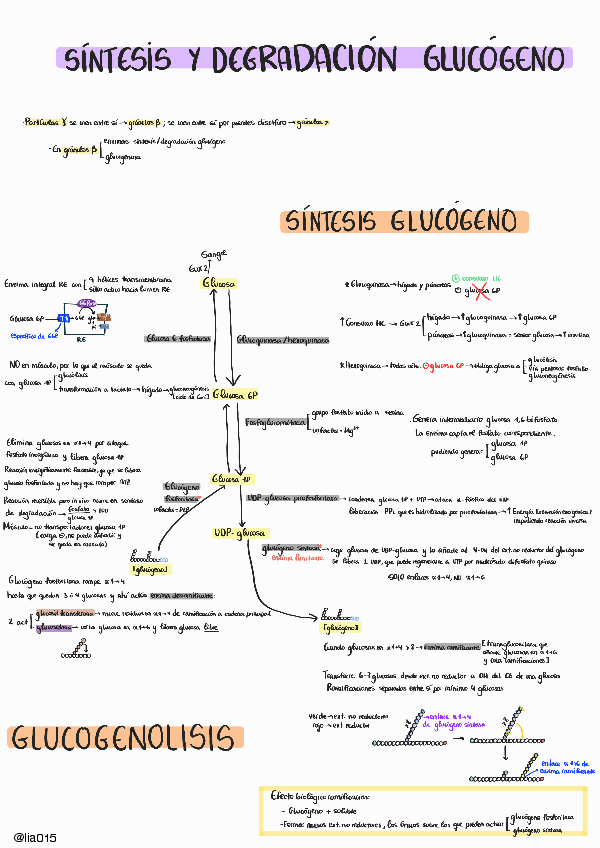 SÍNTESIS Y DEGRADACIÓN GLUCÓGENO
· Partículas γ se unen entre sí → gránulos β ; se unen entre sí por puentes disulfuro → gránulos
· En gránulos β
enzimas síntesis/degradación glucógeno
glucogenina
SÍNTESIS GLUCÓGENO
Sangre
GLUT 2
Glucosa
Enzima integral RE con
9 hélices transmembrana
sitio activo hacia lumen RE
Glucosa 6P
específico de G6P
RE
Glucosa 6 fosfatasa
Glucoquinasa / hexoquinasa
* Glucoquinasa → hígado y páncreas
glucosa 6P
GLUT 2
hígado → ↑ glucoquinasa → ↑ glucosa 6P
páncreas → ↑ glucoquinasa = sensor glucosa → ↑ insulina
* Hexoquinasa →
glucosa 6P → obliga glucosa a
glucólisis
vía pentosas fosfato
gluconeogénesis
NO en músculo, por lo que el músculo se queda
con glucosa 6P
glucólisis
transformación a lactato → hígado → gluconeogénesis
Glucosa 6P
Fosfoglucomutasa
grupo fosfato unido a serina
cofactor = Mg²⁺
· Genera intermediario glucosa 1,6 bifosfato
La enzima capta el fosfato correspondiente,
pudiendo generar
glucosa 1P
glucosa 6P
Elimina glucosas en α1→4 por
fosfato inorgánico y libera glucosa 1P
Reacción energéticamente favorable, ya que se libera
glucosa fosforilada y no hay que romper ATP
Reacción reversible pero in vivo ocurre en sentido
de degradación →
fosfato
glucosa 1P
Músculo → no transportadores glucosa 1P
Glucosa 1P
Glucógeno
fosforilasa
cofactor = PLP
UDP glucosa pirofosforilasa → condensa glucosa 1P + UTP →
liberación PPi que es hidrolizado por pirofosfatasa →
impidiendo reacción inversa
UDP-glucosa
glucógeno sintasa → coge glucosa de UDP-glucosa y la añade al 4-OH del ext. no reductor del glucógeno
enzima limitante
Se libera 1 UDP, que puede regenerarse a UTP por nucleósido difosfato quinasa
SOLO enlaces α1→4, NO α1→6
[glucógeno]
Glucógeno fosforilasa rompe α1→4
hasta que quedan 3 ó 4 glucosas y ahí actúa enzima desramificante:
2 act
glucosil transferasa → mueve residuos en α1→4 de ramificación a cadena principal
glucosidasa → corta glucosa en α1→6 y libera glucosa libre
[glucógeno]
Cuando glucosas en α1→4 > 8 → enzima ramificante
Extrae glucosas para que
enlace glucosas en α1→6
y cree ramificaciones
Transfiere 6-7 glucosas desde ext. no reductor a OH del C6 de una glucosa
Ramificaciones separadas entre sí por mínimo 4 glucosas
GLUCOGENOLISIS
verde → ext. no reductores
rojo → ext reductor
enlace α1→4
de glucógeno sintasa
enlace α1→6 de
enzima ramificante
Efecto biológico ramificación:
- Glucógeno + soluble
- Formar nuevos ext. no reductores, los únicos sobre los que pueden actuar
glucógeno fosforilasa
glucógeno sintasa
@lia015